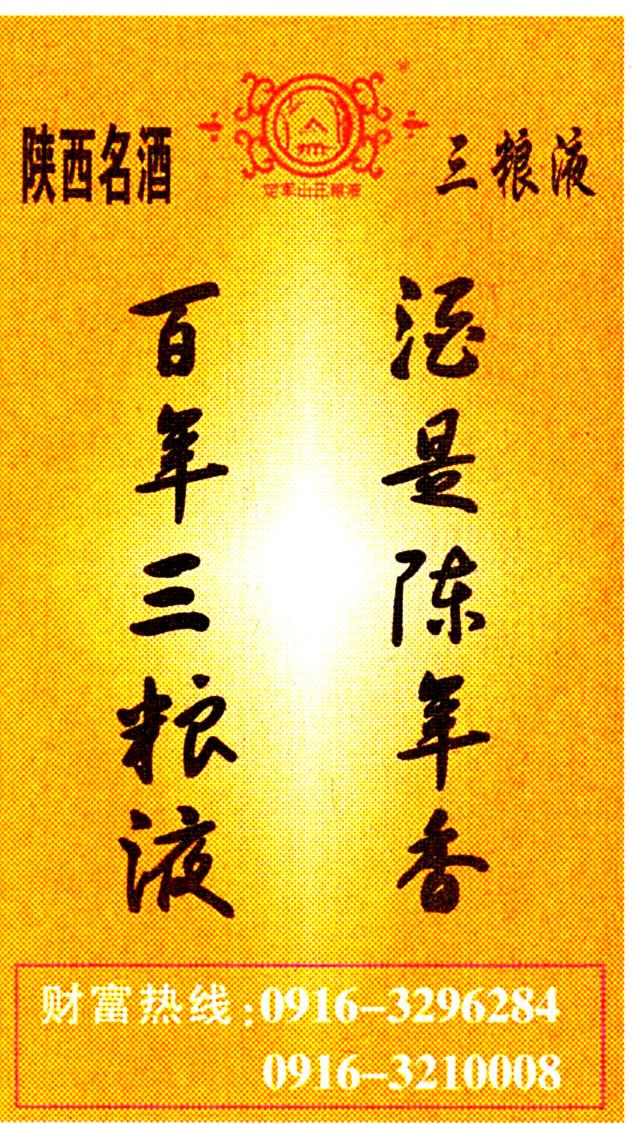 陕西名酒
定军山三粮液
三粮液
酒是陈年香
百年三粮液
财富热线:0916-3296284
0916-3210008